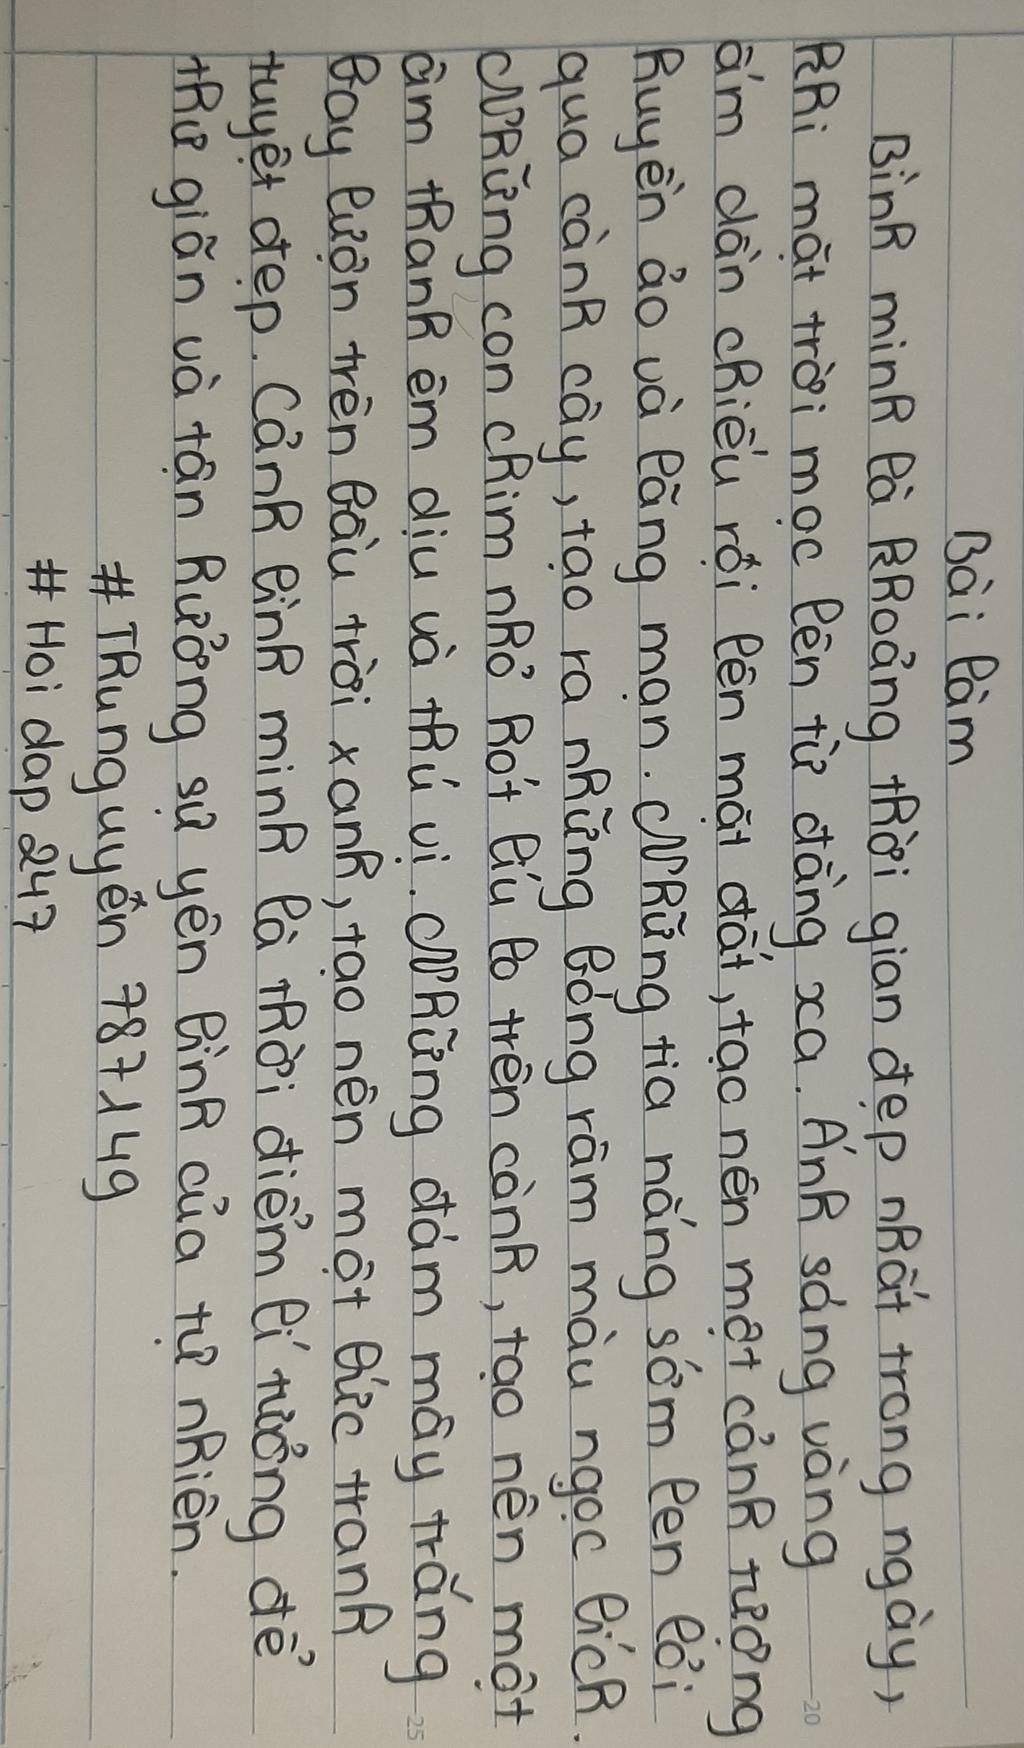 Bài làm
Bình minh là khoảng thời gian đẹp nhất trong ngày,
khi mặt trời mọc lên từ đằng xa. Ánh sáng vàng
ấm dần chiếu rọi lên mặt đất, tạo nên một cảnh tượng
huyền ảo và lãng mạn. Những tia nắng sớm len lỏi
qua cành cây, tạo ra những bóng râm màu ngọc bích.
Những con chim nhỏ hót líu lo trên cành, tạo nên một
âm thanh êm dịu và thú vị. Những đám mây trắng
bay lượn trên bầu trời xanh, tạo nên một bức tranh
tuyệt đẹp. Cảnh bình minh là thời điểm lí tưởng để
thư giãn và tận hưởng sự yên bình của tự nhiên.
#Thunguyễn 787149
#Hoidap247
20
25